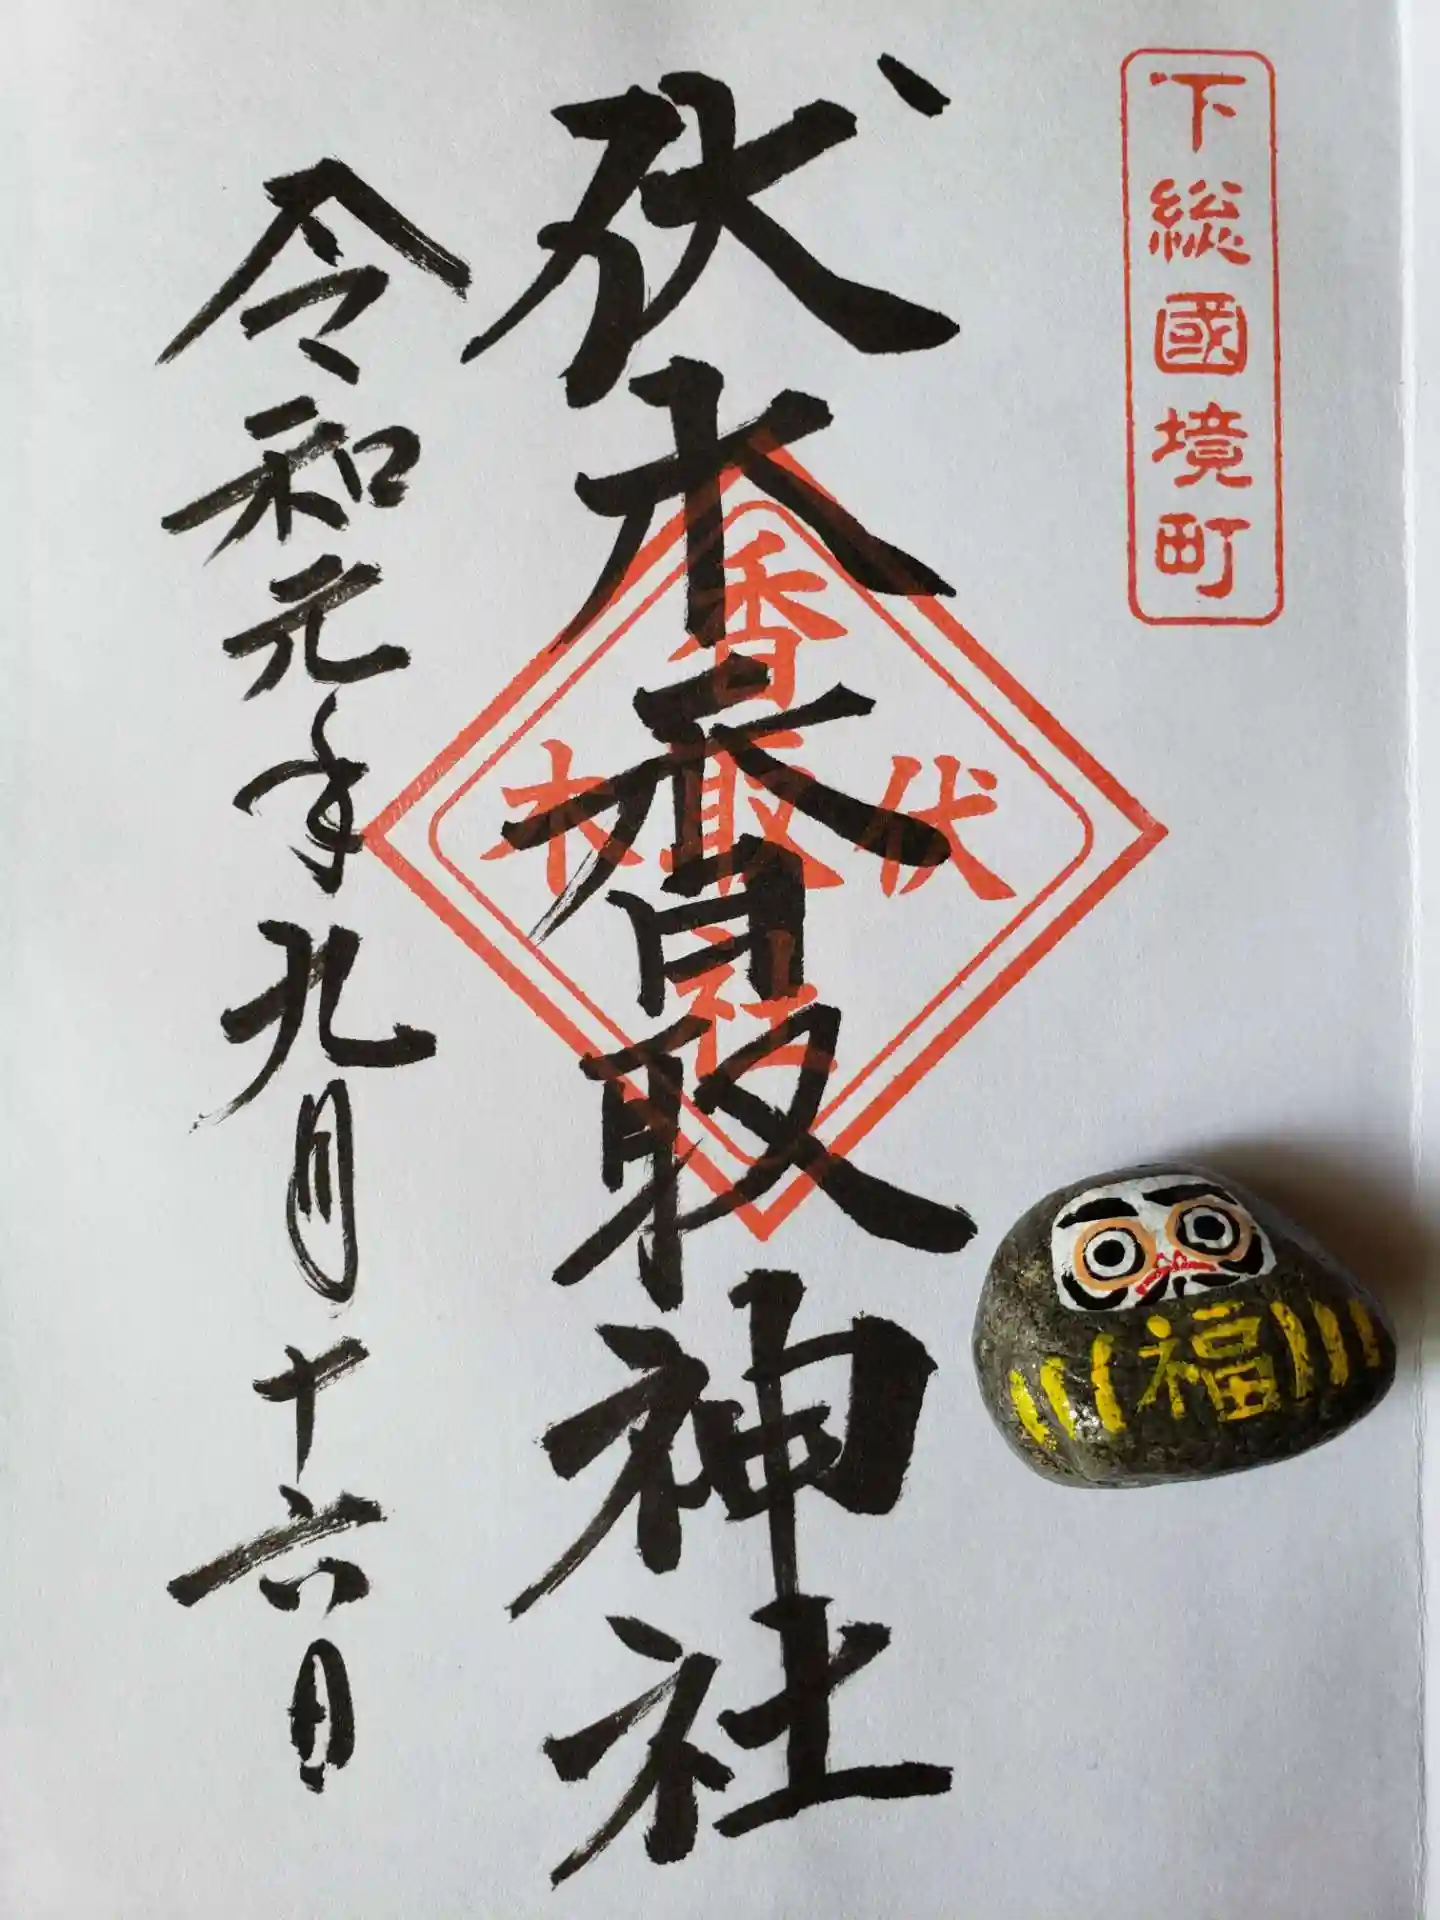 下総國境町
伏木香取神社
伏木
香取社
令和元年九月十六日
福